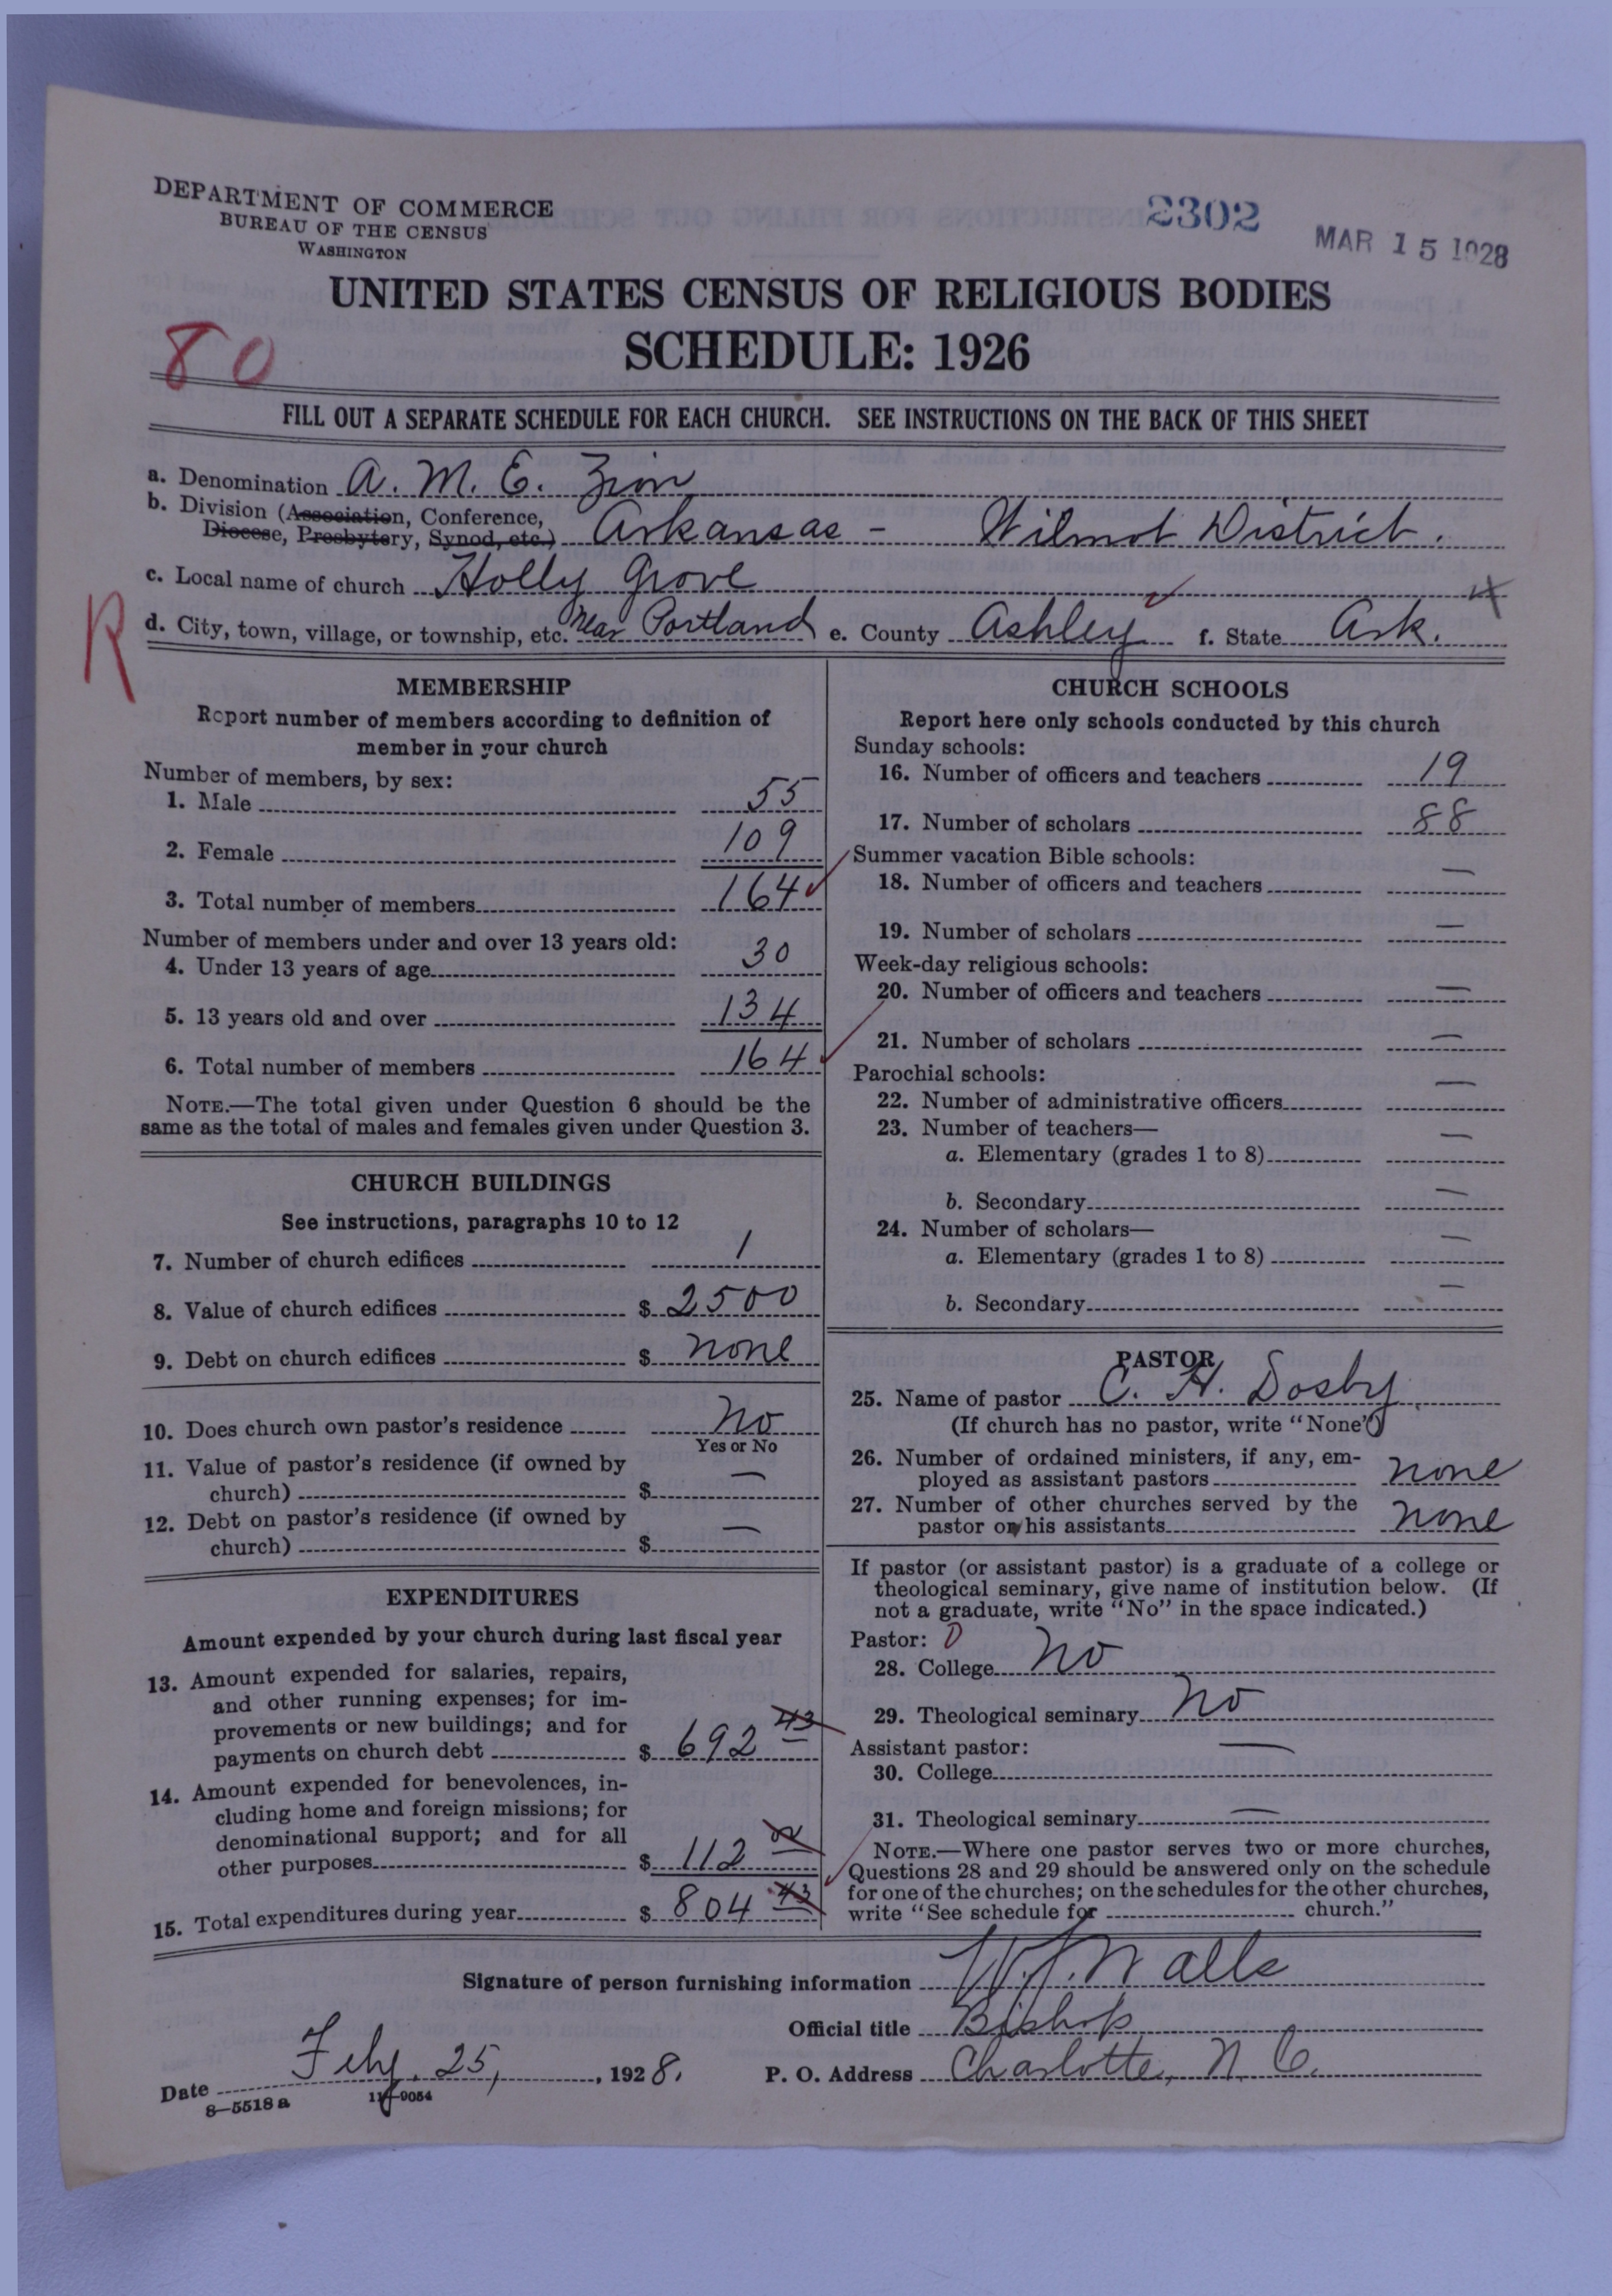 DEPARTMENT OF COMMERCE
BUREAU OF THE CENSUS
WASHINGTON
2302
MAR 15 1928
UNITED STATES CENSUS OF RELIGIOUS BODIES
SCHEDULE: 1926
80
FILL OUT A SEPARATE SCHEDULE FOR EACH CHURCH. SEE INSTRUCTIONS ON THE BACK OF THIS SHEET
a. Denomination A. M. E. Zion
b. Division (Association, Conference,
Diocese, Presbytery, Synod, etc.) Arkansas - Wilmot District.
c. Local name of church Holly Grove
R
d. City, town, village, or township, etc. near Portland e. County Ashley f. State Ark.
MEMBERSHIP
Report number of members according to definition of
member in your church
Number of members, by sex:
1. Male 55
2. Female 109
3. Total number of members 164
Number of members under and over 13 years old:
4. Under 13 years of age 30
5. 13 years old and over 134
6. Total number of members 164
NOTE.—The total given under Question 6 should be the
same as the total of males and females given under Question 3.
CHURCH BUILDINGS
See instructions, paragraphs 10 to 12
7. Number of church edifices 1
8. Value of church edifices $ 2500
9. Debt on church edifices $ none
10. Does church own pastor's residence No
Yes or No
11. Value of pastor's residence (if owned by
church) $ —
12. Debt on pastor's residence (if owned by
church) $ —
EXPENDITURES
Amount expended by your church during last fiscal year
13. Amount expended for salaries, repairs,
and other running expenses; for im-
provements or new buildings; and for
payments on church debt $ 692 43
14. Amount expended for benevolences, in-
cluding home and foreign missions; for
denominational support; and for all
other purposes $ 112
15. Total expenditures during year $ 804 43
CHURCH SCHOOLS
Report here only schools conducted by this church
Sunday schools:
16. Number of officers and teachers 19
17. Number of scholars 88
Summer vacation Bible schools:
18. Number of officers and teachers —
19. Number of scholars —
Week-day religious schools:
20. Number of officers and teachers —
21. Number of scholars —
Parochial schools:
22. Number of administrative officers —
23. Number of teachers—
a. Elementary (grades 1 to 8) —
b. Secondary —
24. Number of scholars—
a. Elementary (grades 1 to 8) —
b. Secondary —
PASTOR
25. Name of pastor C. H. Dosby
(If church has no pastor, write "None")
26. Number of ordained ministers, if any, em-
ployed as assistant pastors none
27. Number of other churches served by the
pastor or his assistants none
If pastor (or assistant pastor) is a graduate of a college or
theological seminary, give name of institution below. (If
not a graduate, write "No" in the space indicated.)
Pastor: 0
28. College No
29. Theological seminary No
Assistant pastor:
30. College —
31. Theological seminary —
NOTE.—Where one pastor serves two or more churches,
Questions 28 and 29 should be answered only on the schedule
for one of the churches; on the schedules for the other churches,
write "See schedule for church."
Signature of person furnishing information W. J. Walls
Official title Bishop
Date Feby. 25, , 1928. P. O. Address Charlotte, N. C.
8—5518 a 11—9054